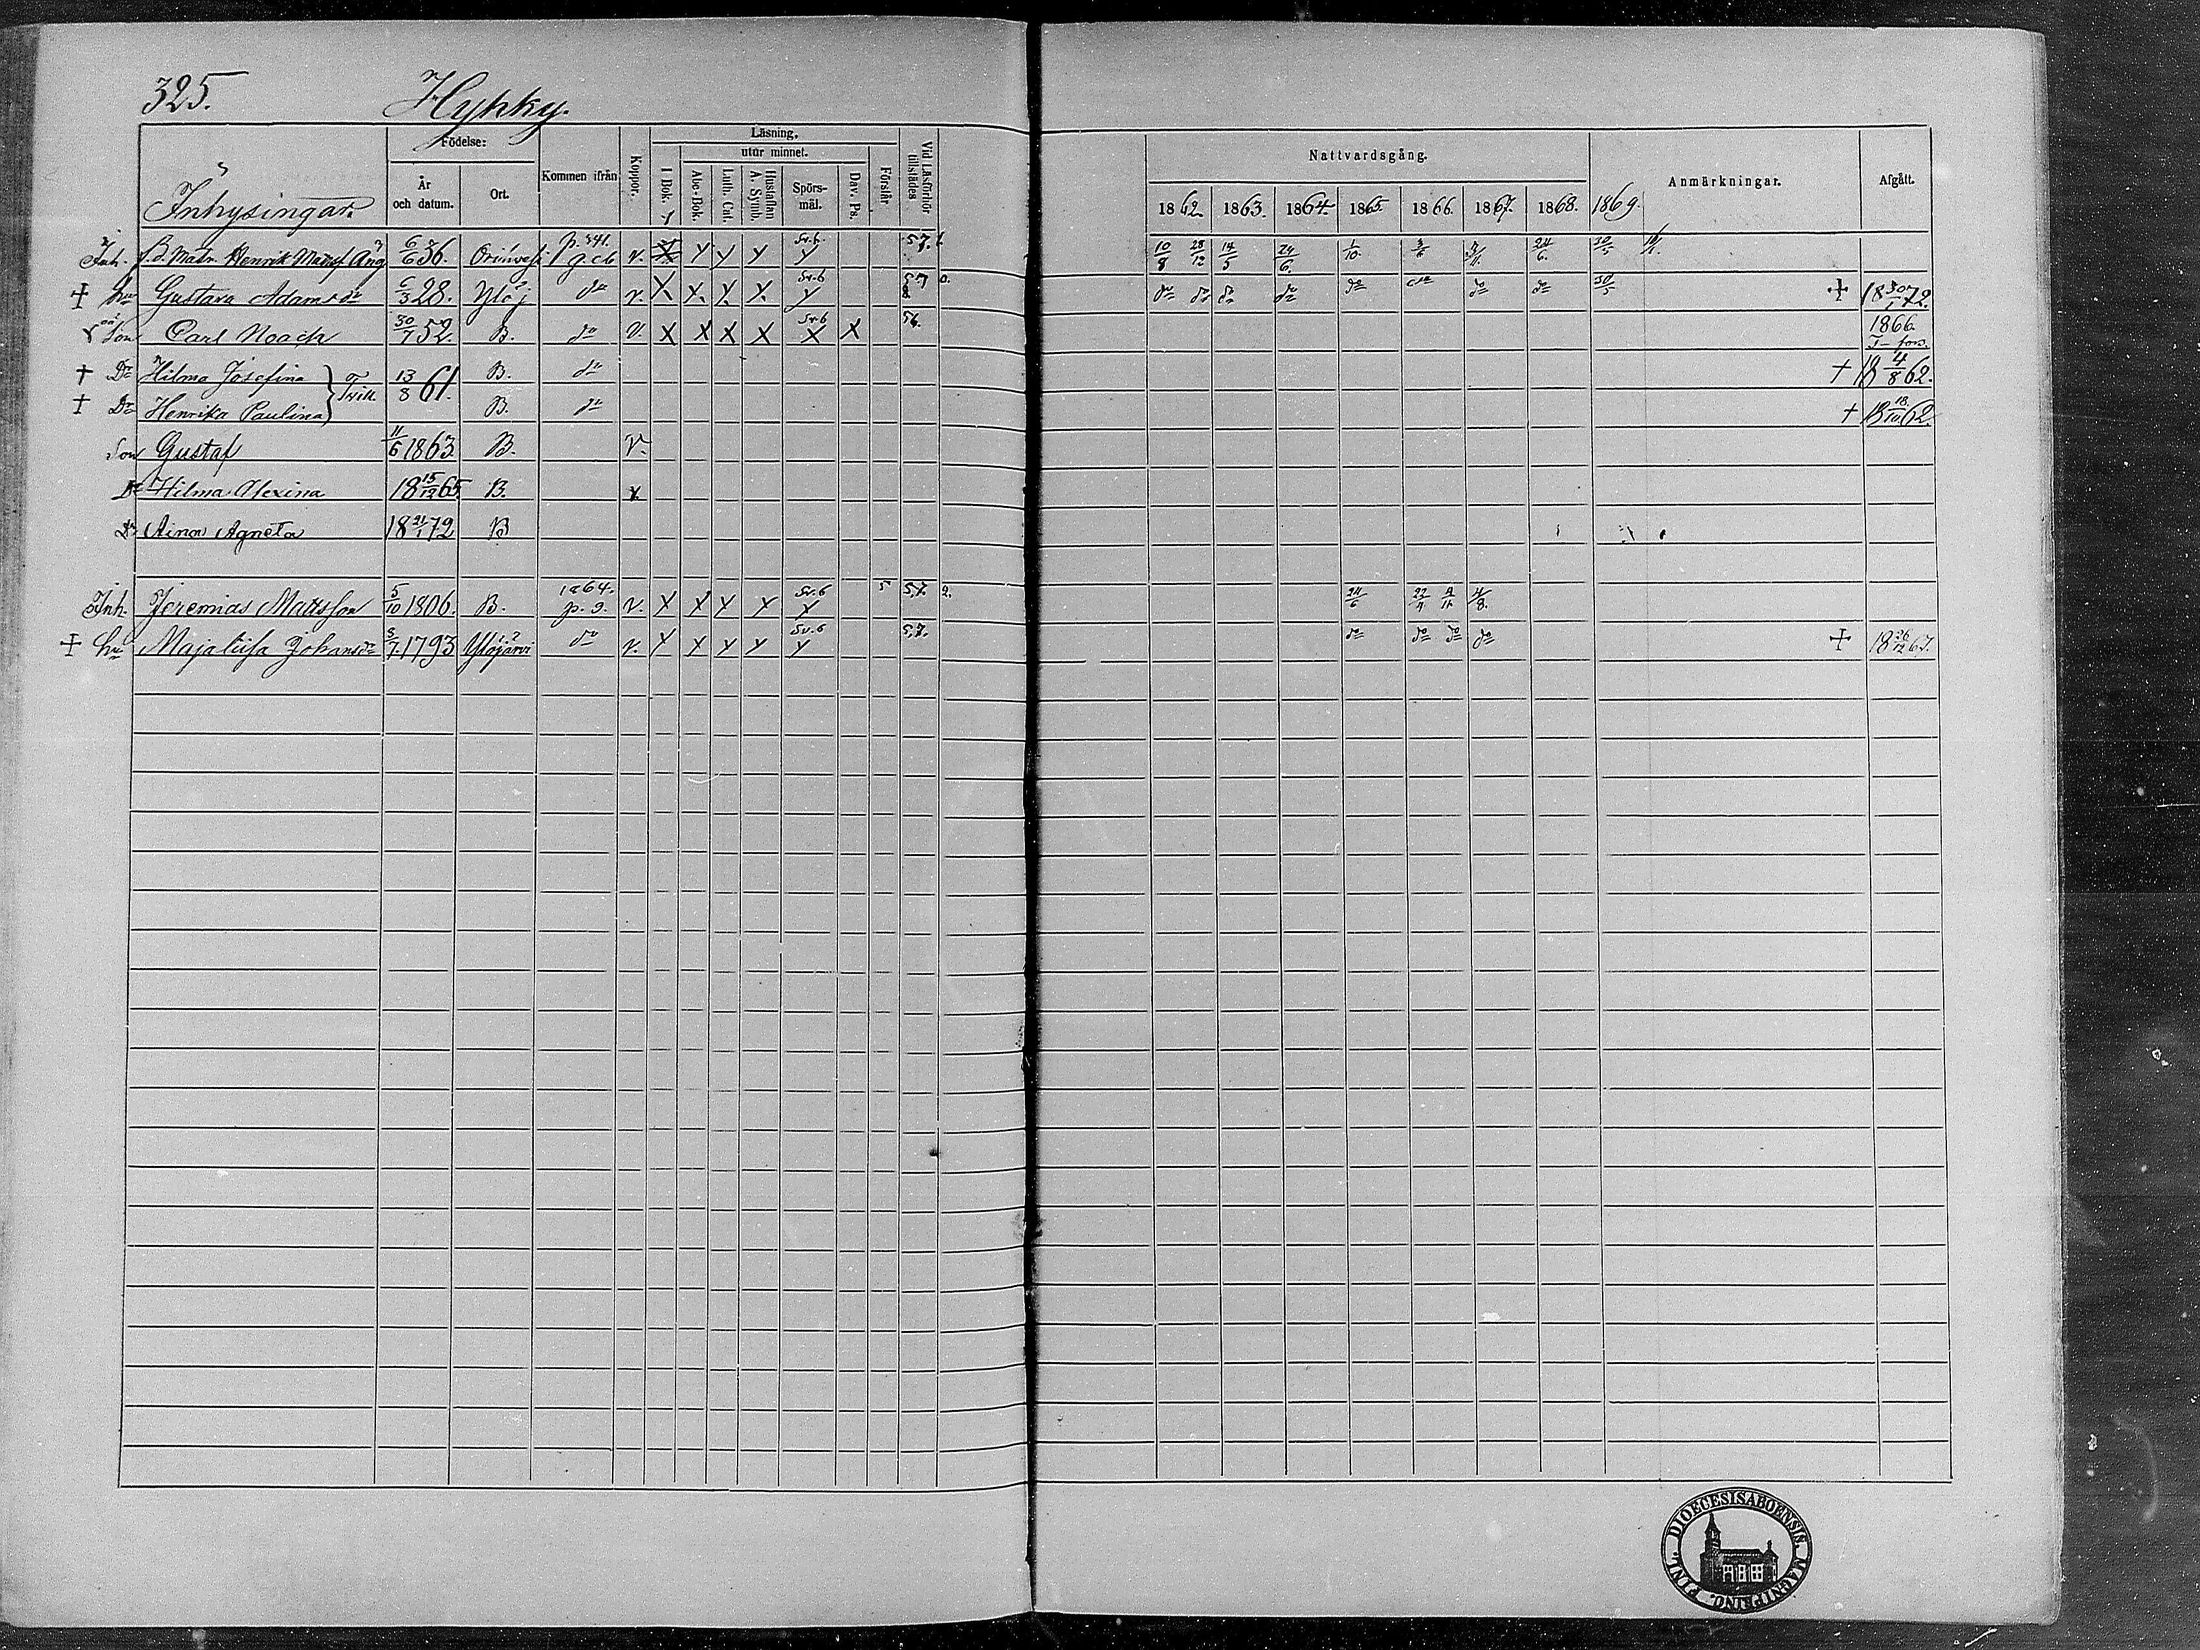 325. Hykky.
Födelse: Läsning, Nattvardsgång.
Inhysingar. År och datum. Ort. Kommen ifrån Koppor. I Bok. utur minnet. Abc-Bok. Luth. Cat. Hustaflan A. Symb. Spörs-mål. Dav. Ps. Förstår Vid Läsförhör tillstädes 1862. 1863. 1864. 1865. 1866. 1867. 1868. 1869. Anmärkningar. Afgått.
Inh. Henrik 6/6 36. p. 341. v. X Y Y Y Sv.6 Y 5.7. 10/8 28/12 14/5 24/6. 1/10. 24/6.
† Gustava Adamsdr 6/3 28. Ylöj do v. X Y. X. X. Sv.6 Y 5.7 do do do do do do do 30/5 † 18 30/1 72.
Son Carl Noach 30/7 52. B. do V. X X X X Sv.6 X X 56. 1866. T-fors.
† Dr Hilma Josefina } Tvill. 13/8 61. B. do † 18 4/8 62.
† Dr Henrika Paulina } B. do † 18 18/10 62.
Son Gustaf 11/6 1863. B. V.
Dr Hilma Alexina 18 15/12 65. B. v.
Dr Aina Agneta 18 21/1 72 B
Inh. Jeremias Matsson 5/10 1806. B. 1864. p. 9. V. X X Y X Sv.6 Y 5 5.7. 2. 24/6 4/8.
† hu Maja Lisa Johansdr 3/7 1793 Ylöjärvi do v. Y X Y Y Sv.6 Y 5.7. do do do do † 18 26/12 67.
FINL. DIOECESIS ABOENSIS. MAGNI PRINC.